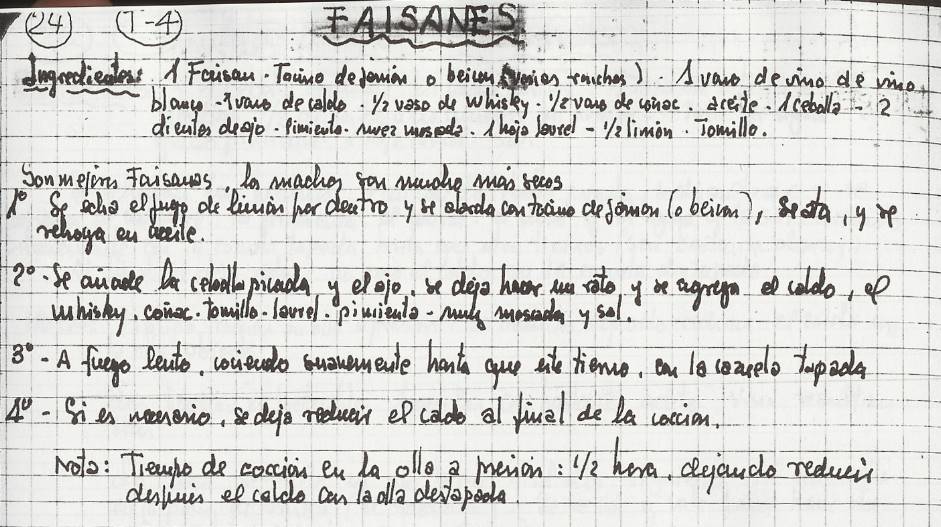 24 (T-4) FAISANES
Ingredientes: 1 Faisan - Tocino de jamón o beicon (varias lonchas) - 1 vaso de vino de vino
blanco - 1 vaso de caldo - 1/2 vaso de whisky - 1/2 vaso de coñac - aceite - 1 cebolla - 2
dientes de ajo - Pimienta - nuez moscada - 1 hoja laurel - 1/2 limón - Tomillo.
Son mejores Faisanas, los machos son mucho más secos
1º Se echa el jugo de limón por dentro y se alarda con tocino de jamon (o beicon), se ata, y se
rehoga en aceite.
2º - Se añade la cebolla picada y el ajo, se deja hacer un rato y se agrega el caldo, el
whisky, coñac - tomillo - laurel - pimienta - nuez moscada y sal.
3º - A fuego lento, cociendo suavemente hasta que esté tierno, con la cazuela tapada
4º - Si es necesario, se deja reducir el caldo al final de la coccion.
Nota: Tiempo de cocción en la olla a presión: 1/2 hora, dejando reducir
después el caldo con la olla destapada